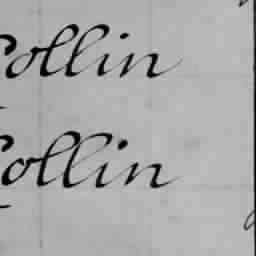 Collin
Collin